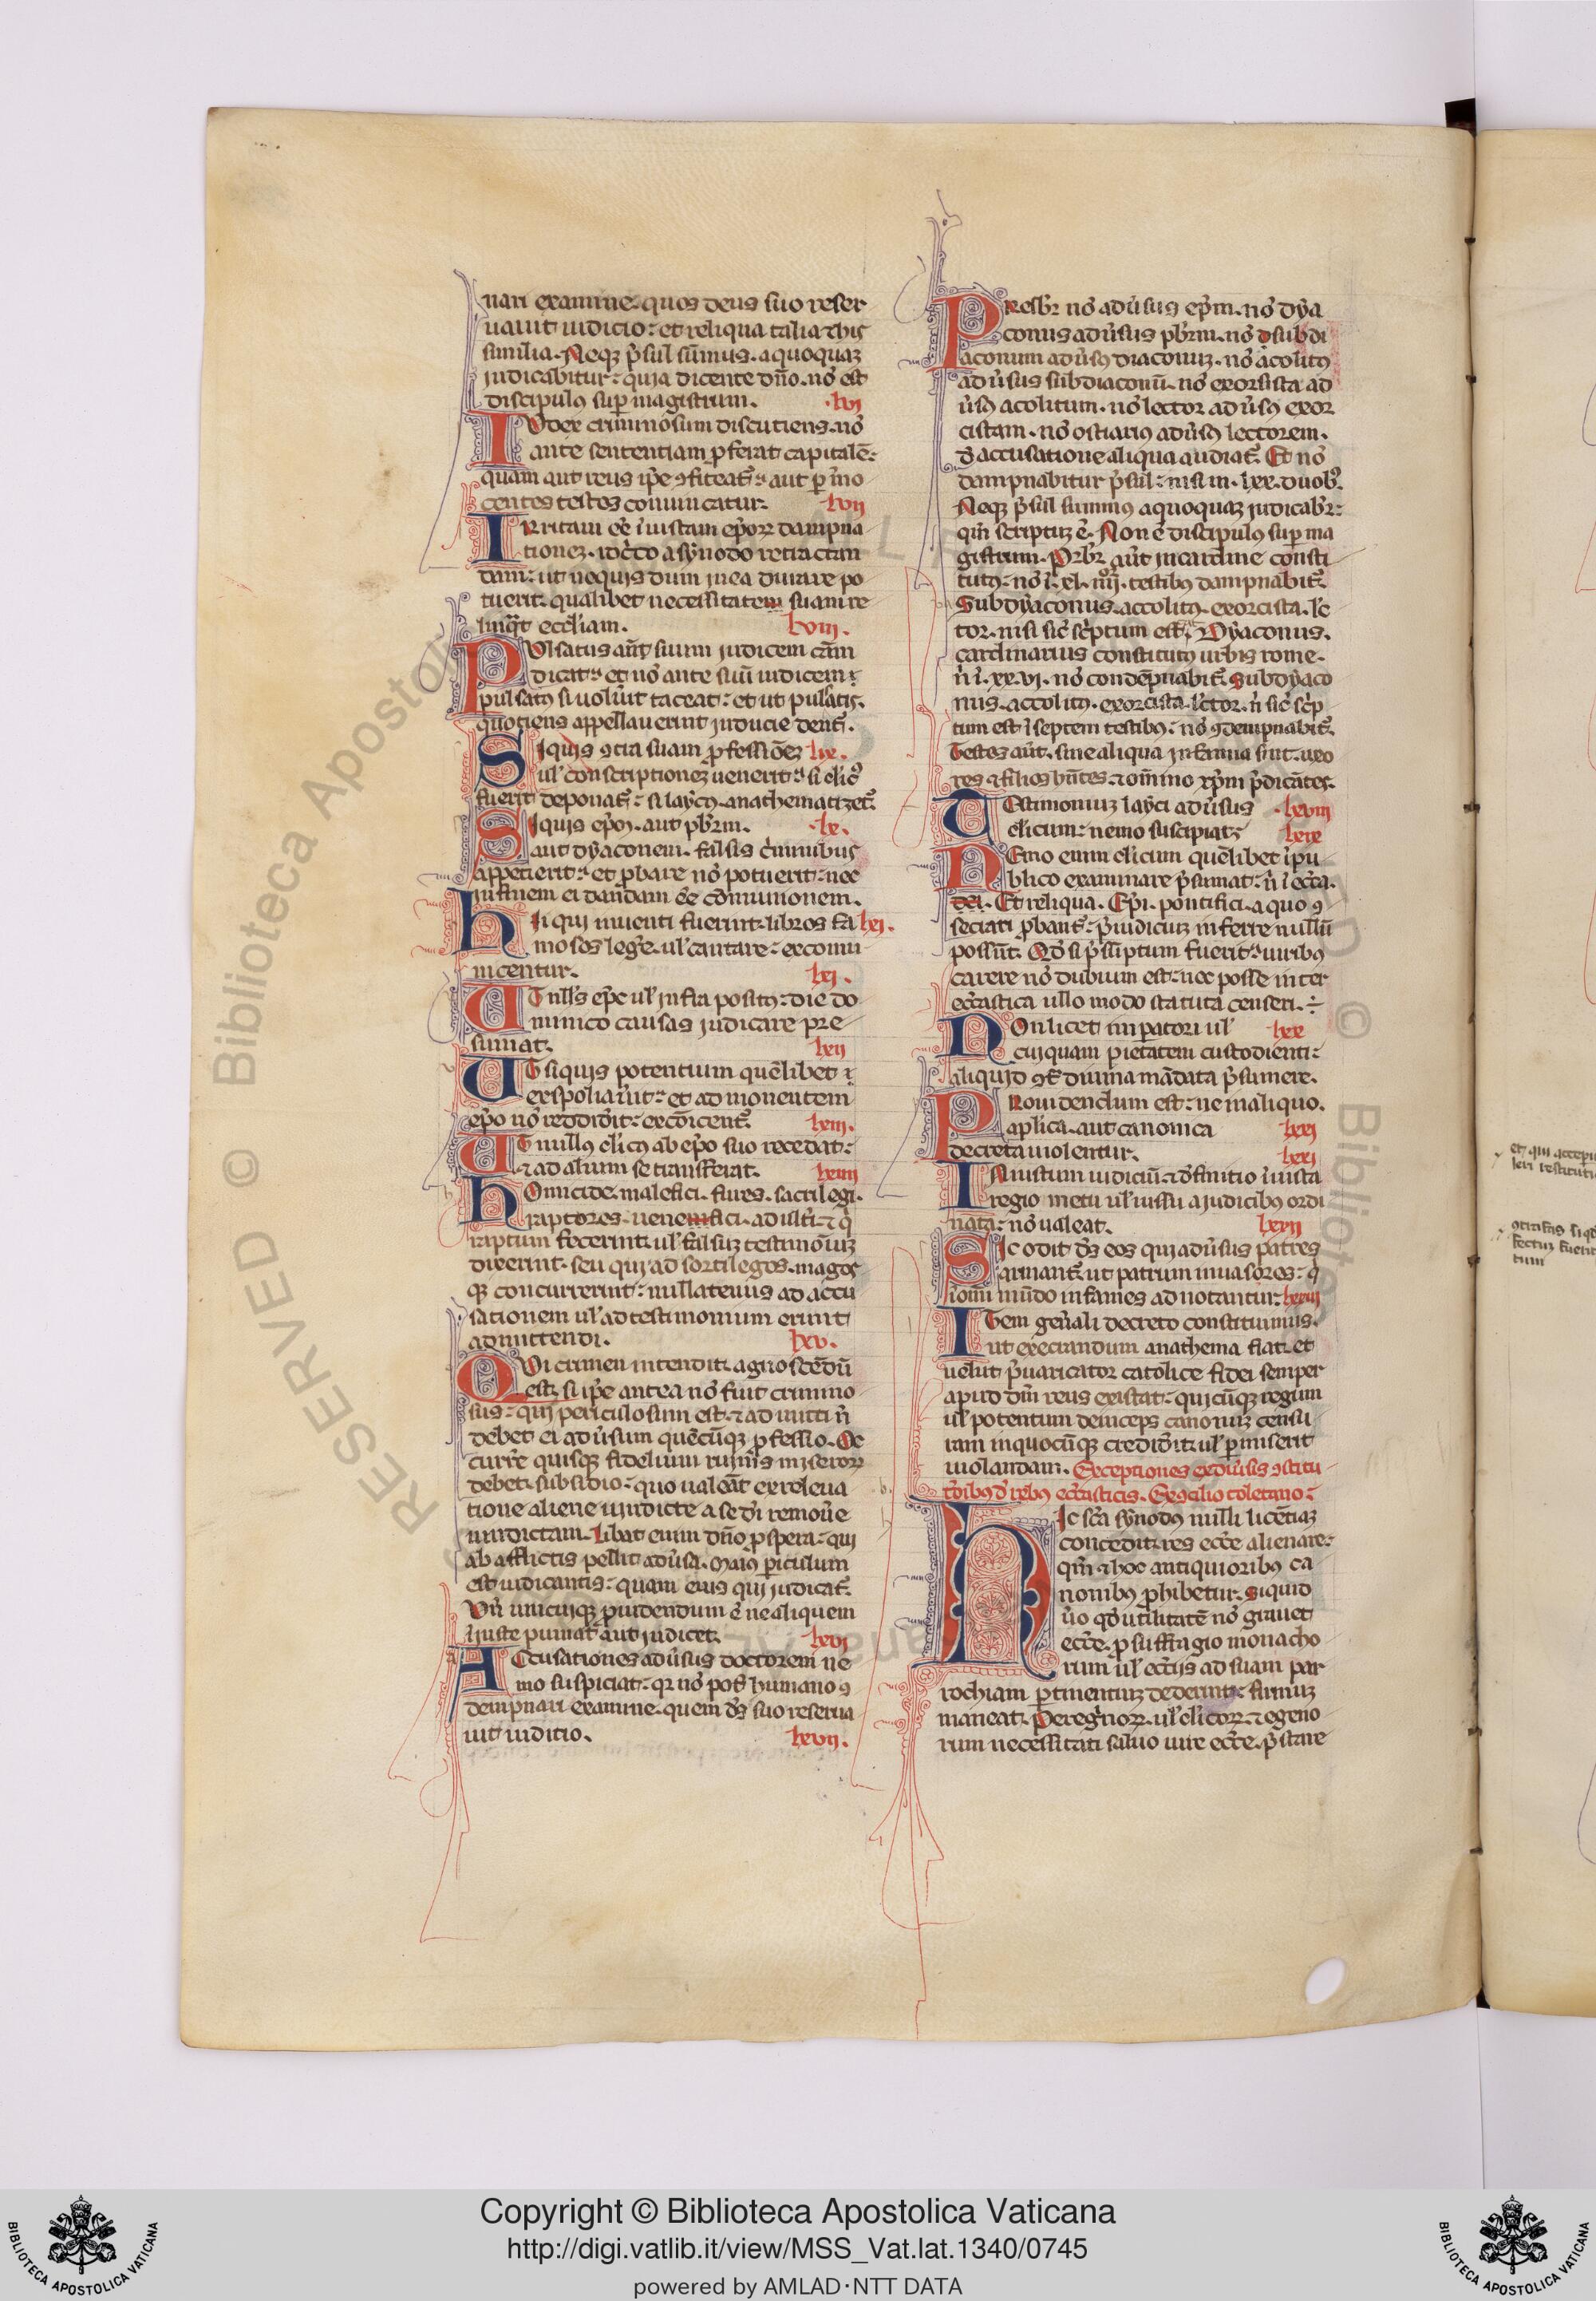 nari examine. quos deus suo reser
uauit iudicio: et reliqua talia ⁊ his
similia. Neqꝫ p̄sul sūmus. a quoquaꝫ
iudicabitur: quia dicente dn̄o. nō est
discipulus sup̄ magistrum. .lvi
IUdex criminosum discutiens. nō
ante sententiam ꝓferat capitalē:
quam aut reus ip̄e ꝯfiteat᷑: aut ꝑ īno
centes testes conuincatur. lvii
IRritam eē īiustam ep̄orꝝ dampna
tionez. idc̄co a synodo retractan
dam: ut nequis dum in ea durare po
tuerit. qualibet necessitatem suam re
linq̄t eccl̄iam. lviii.
PUlsatus aūt suum iudicem cām
dicat: et nō ante suū iudicem:
pulsatꝰ si uolūit taceat: et ut pulsatis.
quotiens appellauerint inducie dent᷑.
SIquis ꝯtra suam ꝓfessiōeꝫ lix.
ul̄ conscriptioneꝫ uenerit: si cl̄icꝰ
fuerit deponat᷑: si laycꝰ. anathematizet᷑.
SIquis ep̄m. aut pb̄rm. .lx.
aut dyaconem. falsis c̄minibus
appetierit: et ꝓbare nō potuerit: nec
in finem ei dandam eē cōmunionem.
HIi qui inuenti fuerint. libros fa lxi.
mosos leḡe. ul̄ cantare: excomu
nicentur. lxi.
UT null̄s ep̄c ul̄ infra positꝰ: die do
minico causas iudicare pre
sumat. lxii
UT siquis potentium quēlibet
exspoliaūit: et ad monentem
ep̄o nō reddidit: excōicent᷑. lxiii.
UT nullꝰ cl̄icꝰ ab ep̄o suo recedat:
⁊ ad alium se transferat. lxiiii
HOmicide. malefici. fures. sacrilegi.
raptores. uenefici. adult̄i. ⁊ q̄
raptum fecerint. ul̄ falsuꝫ testimōiuꝫ
dixerint. seu qui ad sortilegos. magos
qꝫ concurrerint: nullatenus ad accu
sationem ul̄ ad testimonium erunt
admittendi. lxv.
QUi crimen intendit. agnoscēdū
est. si ip̄e antea nō fuit crimino
sus: quia periculosum est. ⁊ ad mitti n̄
debet ei ad ūsum quēcūqꝫ ꝓfessio. Oc
curr̄e quisqꝫ fidelium ruinis miserorꝝ
debet. subsidio: quo ualeāt ex releua
tione aliene uindicte a se dī remoūe
uindictam. Libat enim dn̄o ꝓspera: qui
ab afflictis pellit adūsa. Maiꝰ ꝑiculum
est iudicantis: quam eius qui iudicat᷑.
Vn̄ unicuiqꝫ ꝓuidendum ē ne aliquem
iniuste puniat aut iudicet. lxvi
ACcusationes adūsus doctorem ne
mo suspiciat: qr nō pōt humano ꝯ
dempnari examine. quem dꝰs suo reserua
uit iuditio. lxvii.
PResbr̄ nō adūsus ep̄m. nō dya
conus adūsus pb̄rm. nō subdi
aconum adūsꝰ diaconuꝫ. nō acolitꝰ
adūsus subdiaconū. nō exorsista ad
ūsꝰ acolitum. nō lector adūsꝰ exor
cistam. nō ostiariꝰ adūsꝰ lectorem.
d̄ accusatione aliqua audiat᷑. Et nō
dampnabitur p̄sul: nisi in. lxx. duobꝰ.
Neqꝫ p̄sul summꝰ a quoquaꝫ iudicab̄r:
qm̄ scriptuꝫ ē. Non ē discipulus sup̄ ma
gistrum. Prb̄r aūt in cardine consti
tutꝰ: nō ī. xl. iiiiͦr. testibꝰ dampnabit᷑.
Subdyaconus. accolitꝰ. exorcista. lc̄
tor. nisi sic̄ sc̄ptum est. Dyaconus.
cardinarius constitutꝰ urbis rome.
n̄ ī. xx.vi. nō condēpnabit᷑. Subdyaco
nus. accolitꝰ. exorcista. lc̄tor. n̄ sic̄ sc̄p
tum est ī septem testibꝰ: nō ꝯdempnabit᷑.
Testes aūt. sine aliqua infamia sint. uxo
res ⁊ filios hn̄tes. ⁊ om̄ino xp̄m p̄dicātes.
TEstimoniuꝫ layci adūsus .lxviii
cl̄icum: nemo suscipiat. lxix
NEmo enim cl̄icum quēlibet ī pu
blico examinare p̄sumat: n̄ ī ecc̄a.
dei. Et reliqua. Ep̄i. pontifici. a quo ꝯ
secrati ꝓbant᷑: p̄iudiciuꝫ inferre nullū
possūt. Qd̄ si p̄sūptum fuerit: uiribꝰ
carere nō dubium est: nec posse inter
ecc̄astica ullo modo statuta censeri.
NOn licet imꝑatori ul̄ lxx
cuiquam pietatem custodienti:
aliquid ꝯt̄ diuina mādata p̄sumere.
PRouidendum est: ne in aliquo.
aplica. aut canonica lxxi
decreta uiolentur. lxxi
INiustum iudiciū. ⁊ d̄finitio īiusta
regio metu ul̄ iussu a iudicibꝰ ordi
nata: nō ualeat. lxxii
SIc odit dꝰs eos qui adūsus patres
armant᷑. ut patrum inuasores: q̄
ī om̄i mūdo infames ad notantur. lxxiii
ITem geñali decreto constituimus.
ut execrandum anathema fiat. et
uelut p̄uaricator catolice fidei semper
apud dm̄ reus existat: quicūqꝫ regum
ul̄ potentum deinceps canonuꝫ censu
ram in quocūqꝫ crediderit. ul̄ ꝑmiserit
uiolandam. Exceptiones ex diūsis ꝯstitu
tōibꝰ d̄ rebꝰ ecc̄asticis. Ex ꝯcilio toletano:
HIc sc̄a synodꝰ nulli licētiaꝫ
concedit. res ecc̄e alienare:
qm̄ ⁊ hoc antiquioribꝰ ca
nonibꝰ ꝓhibetur. Siquid
ūo qd̄ utilitatē nō grauet
ecc̄e. ꝓ suffragio monacho
rum ul̄ ecc̄iis ad suam par
rochiam ꝑtinentiuꝫ dederint: firmuꝫ
maneat. Pereg̓norꝝ. ul̄ cl̄icorꝝ. ⁊ egeno
rum necessitati saluo iure ecc̄e. p̄stare
Copyright © Biblioteca Apostolica Vaticana
http://digi.vatlib.it/view/MSS_Vat.lat.1340/0745
powered by AMLAD·NTT DATA
RESERVED © Biblioteca Apostolica Vaticana
BIBLIOTECA APOSTOLICA VATICANA
BIBLIOTECA APOSTOLICA VATICANA